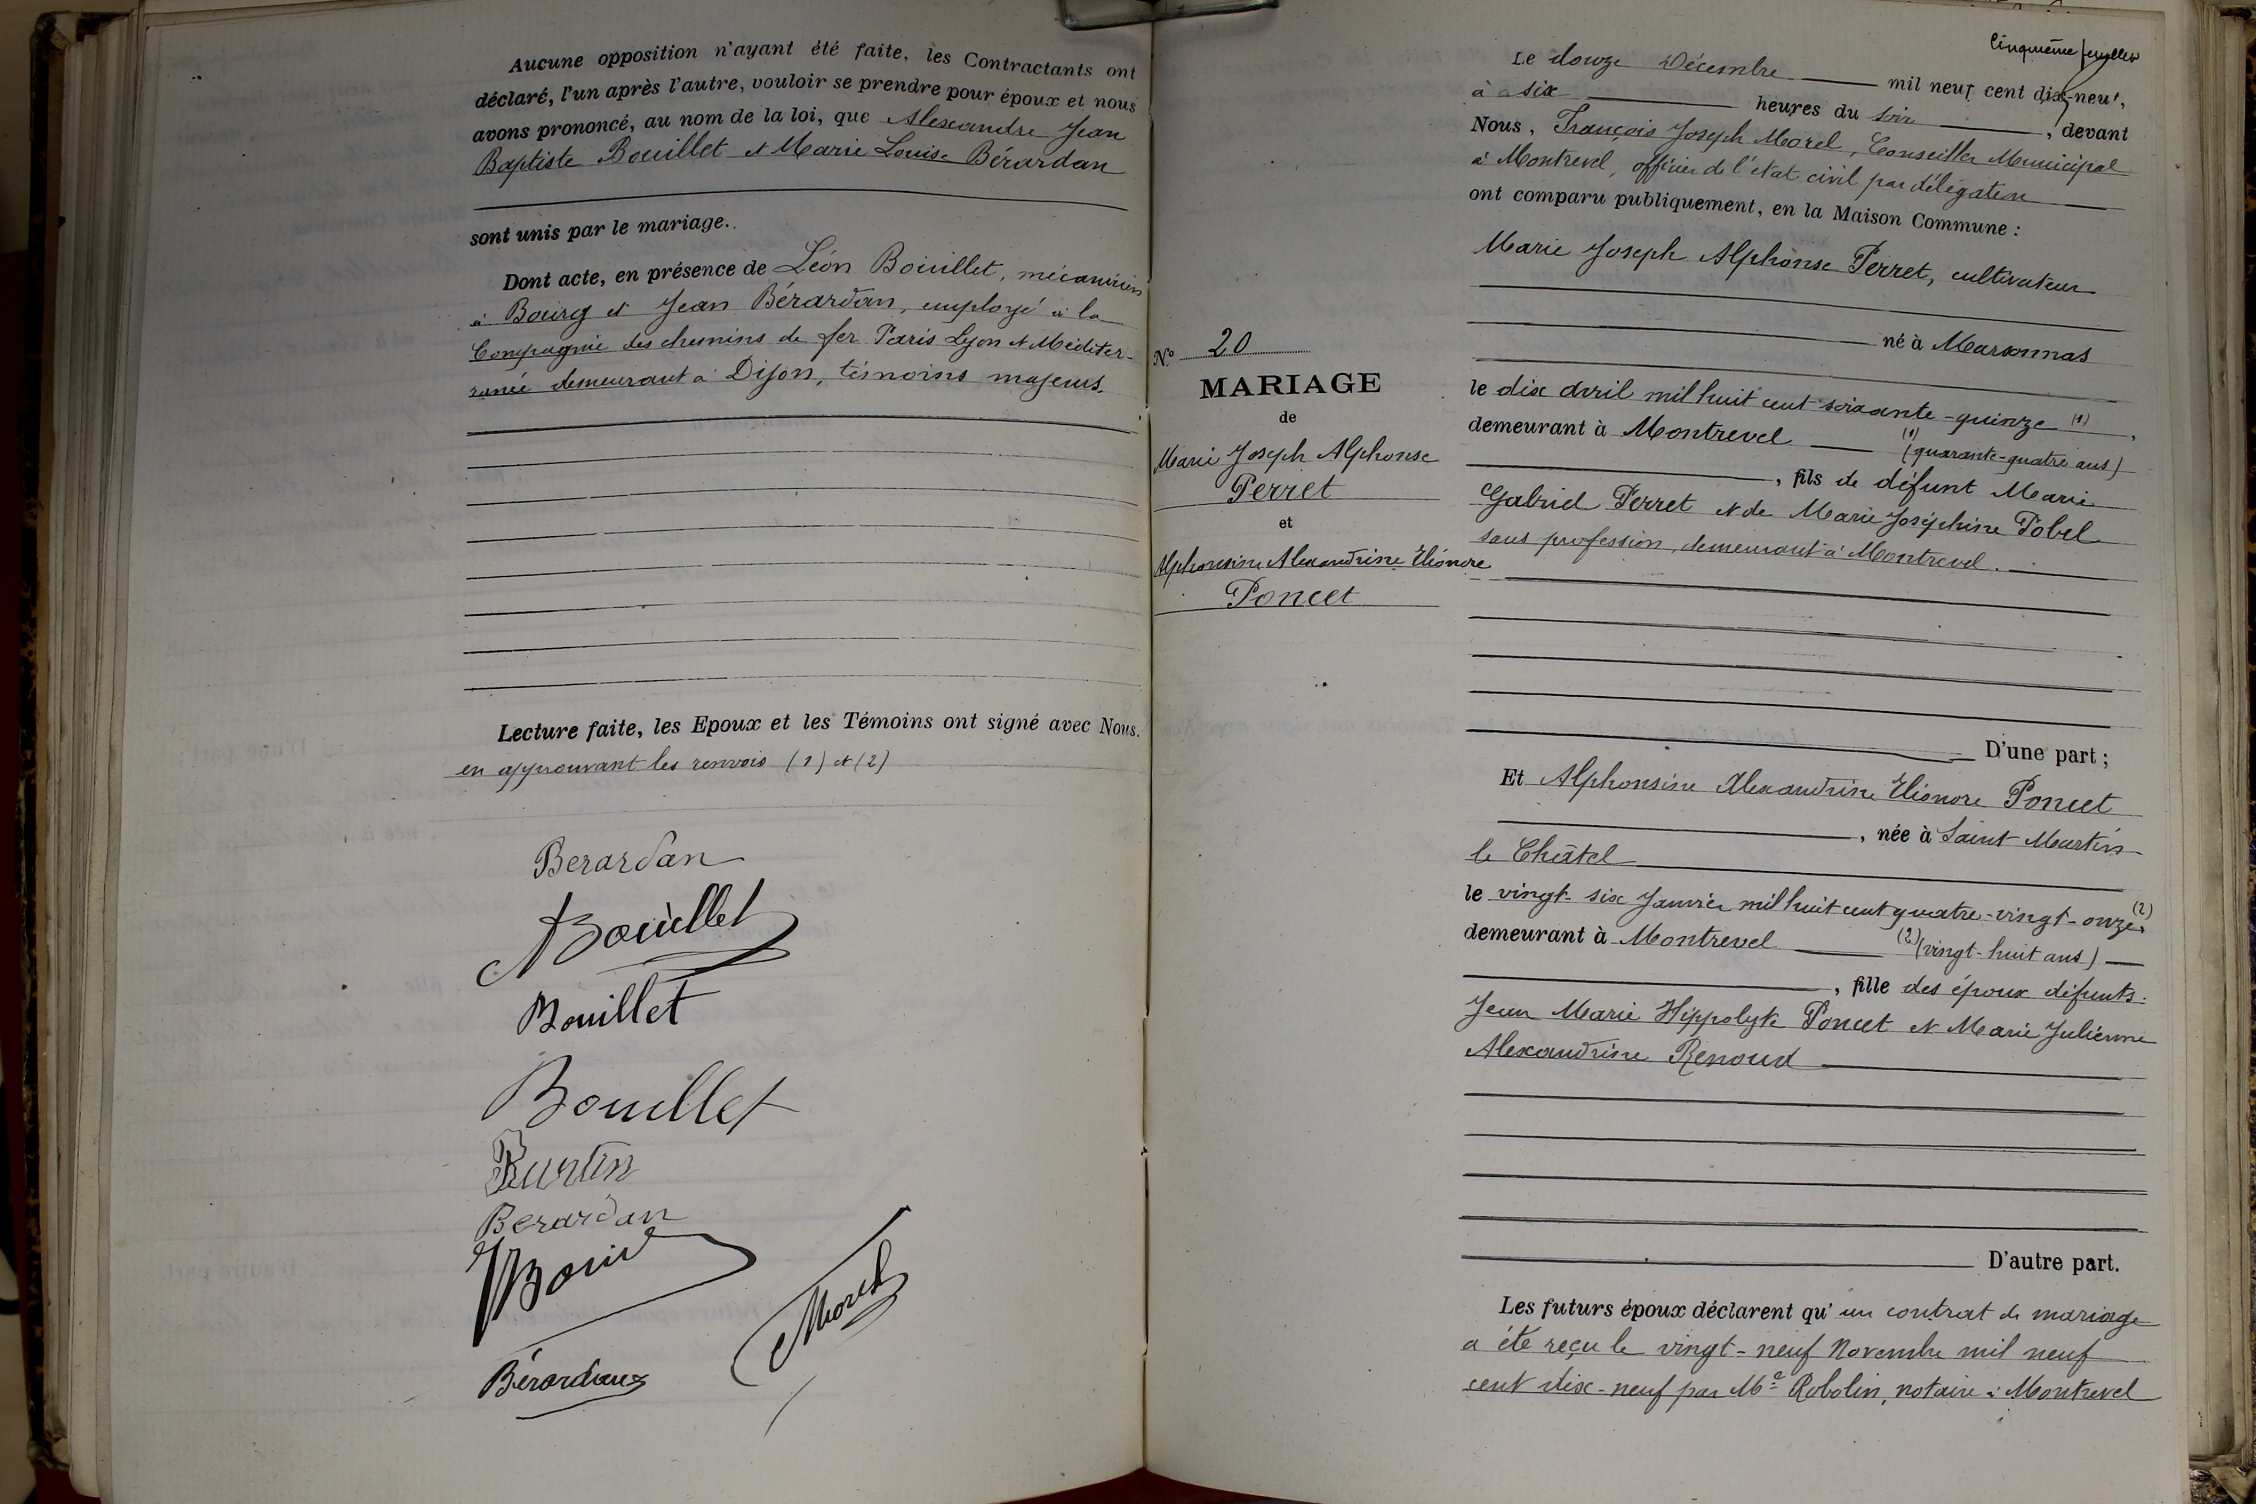 Aucune opposition n'ayant été faite, les Contractants ont
déclaré, l'un après l'autre, vouloir se prendre pour époux et nous
avons prononcé, au nom de la loi, que Alexandre Jean
Baptiste Bouillet et Marie Louise Bérardan
sont unis par le mariage.
Dont acte, en présence de Léon Bouillet, mécanicien
à Bourg et Jean Bérardan, employé à la
Compagnie des chemins de fer Paris Lyon et Méditer-
ranée demeurant à Dijon, témoins majeurs.
Lecture faite, les Epoux et les Témoins ont signé avec Nous.
en approuvant les renvois (1) et (2)
Berardan
ABouillet
Bouillet
Bouillet
Burtin
Berardan
Morel
Bérardan
Cinquième feuillet
Le douze Décembre mil neuf cent dix-neuf,
à six heures du soir, devant
Nous, François Joseph Morel, Conseiller Municipal
à Montrevel, officier de l'état civil par délégation
ont comparu publiquement, en la Maison Commune :
Marie Joseph Alphonse Perret, cultivateur
né à Marsonnas
le dix avril mil huit cent soixante-quinze (1),
demeurant à Montrevel (1) (quarante-quatre ans)
, fils de défunt Marie
Gabriel Perret et de Marie Joséphine Pobel
sans profession, demeurant à Montrevel.
D'une part ;
N° 20
MARIAGE
de
Marie Joseph Alphonse
Perret
et
Alphonsine Alexandrine Eléonore
Poncet
Et Alphonsine Alexandrine Eléonore Poncet
, née à Saint Martin
le Châtel
le vingt-six Janvier mil huit cent quatre-vingt-onze (2)
demeurant à Montrevel (2) (vingt-huit ans)
, fille des époux défunts
Jean Marie Hippolyte Poncet et Marie Julienne
Alexandrine Renoud
D'autre part.
Les futurs époux déclarent qu'un contrat de mariage
a été reçu le vingt-neuf Novembre mil neuf
cent dix-neuf par Me Robolin, notaire à Montrevel